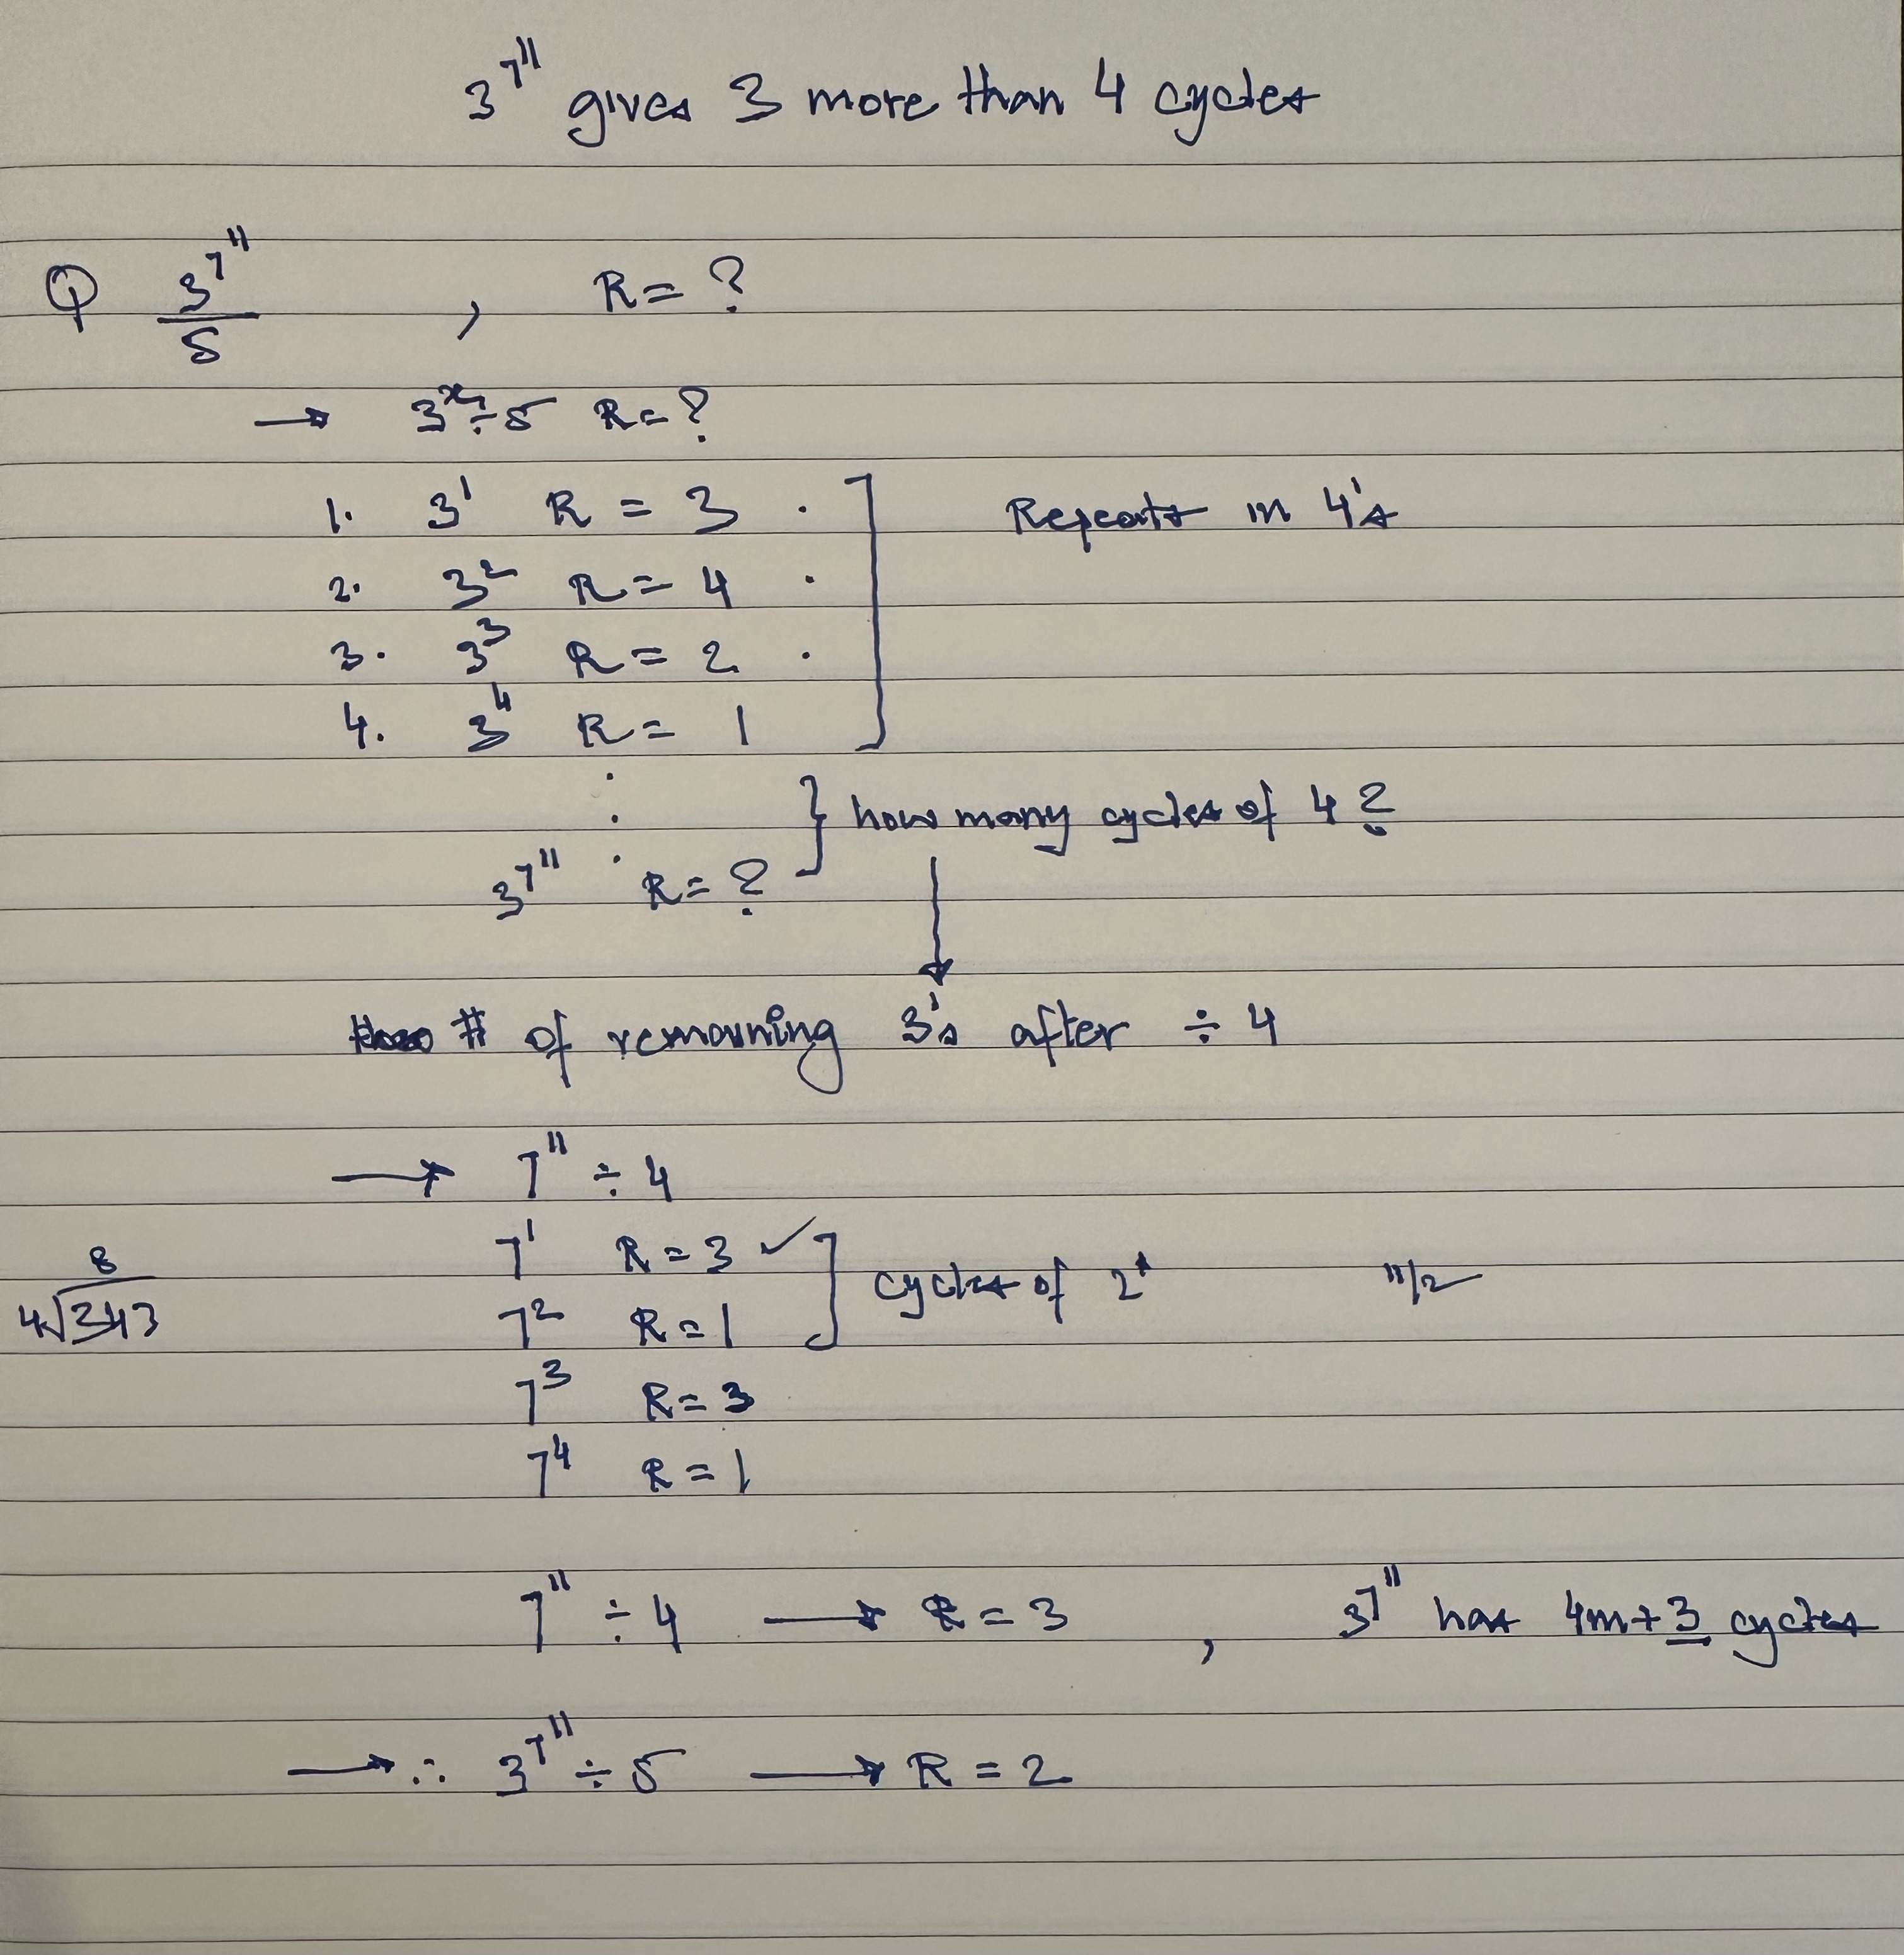 3^7^11 gives 3 more than 4 cycles
Q 3^7^11 / 5 , R = ?
→ 3^x ÷ 5 R = ?
1. 3^1 R = 3 . Repeats in 4's
2. 3^2 R = 4 .
3. 3^3 R = 2 .
4. 3^4 R = 1
} how many cycles of 4 ?
3^7^11 R = ?
# of remaining 3's after ÷ 4
→ 7^11 ÷ 4
7^1 R = 3 ✓
8
4√343
cycles of 2 11/2
7^2 R = 1
7^3 R = 3
7^4 R = 1
7^11 ÷ 4 → R = 3 , 3^7^11 has 4m+3 cycles
→ ∴ 3^7^11 ÷ 5 → R = 2